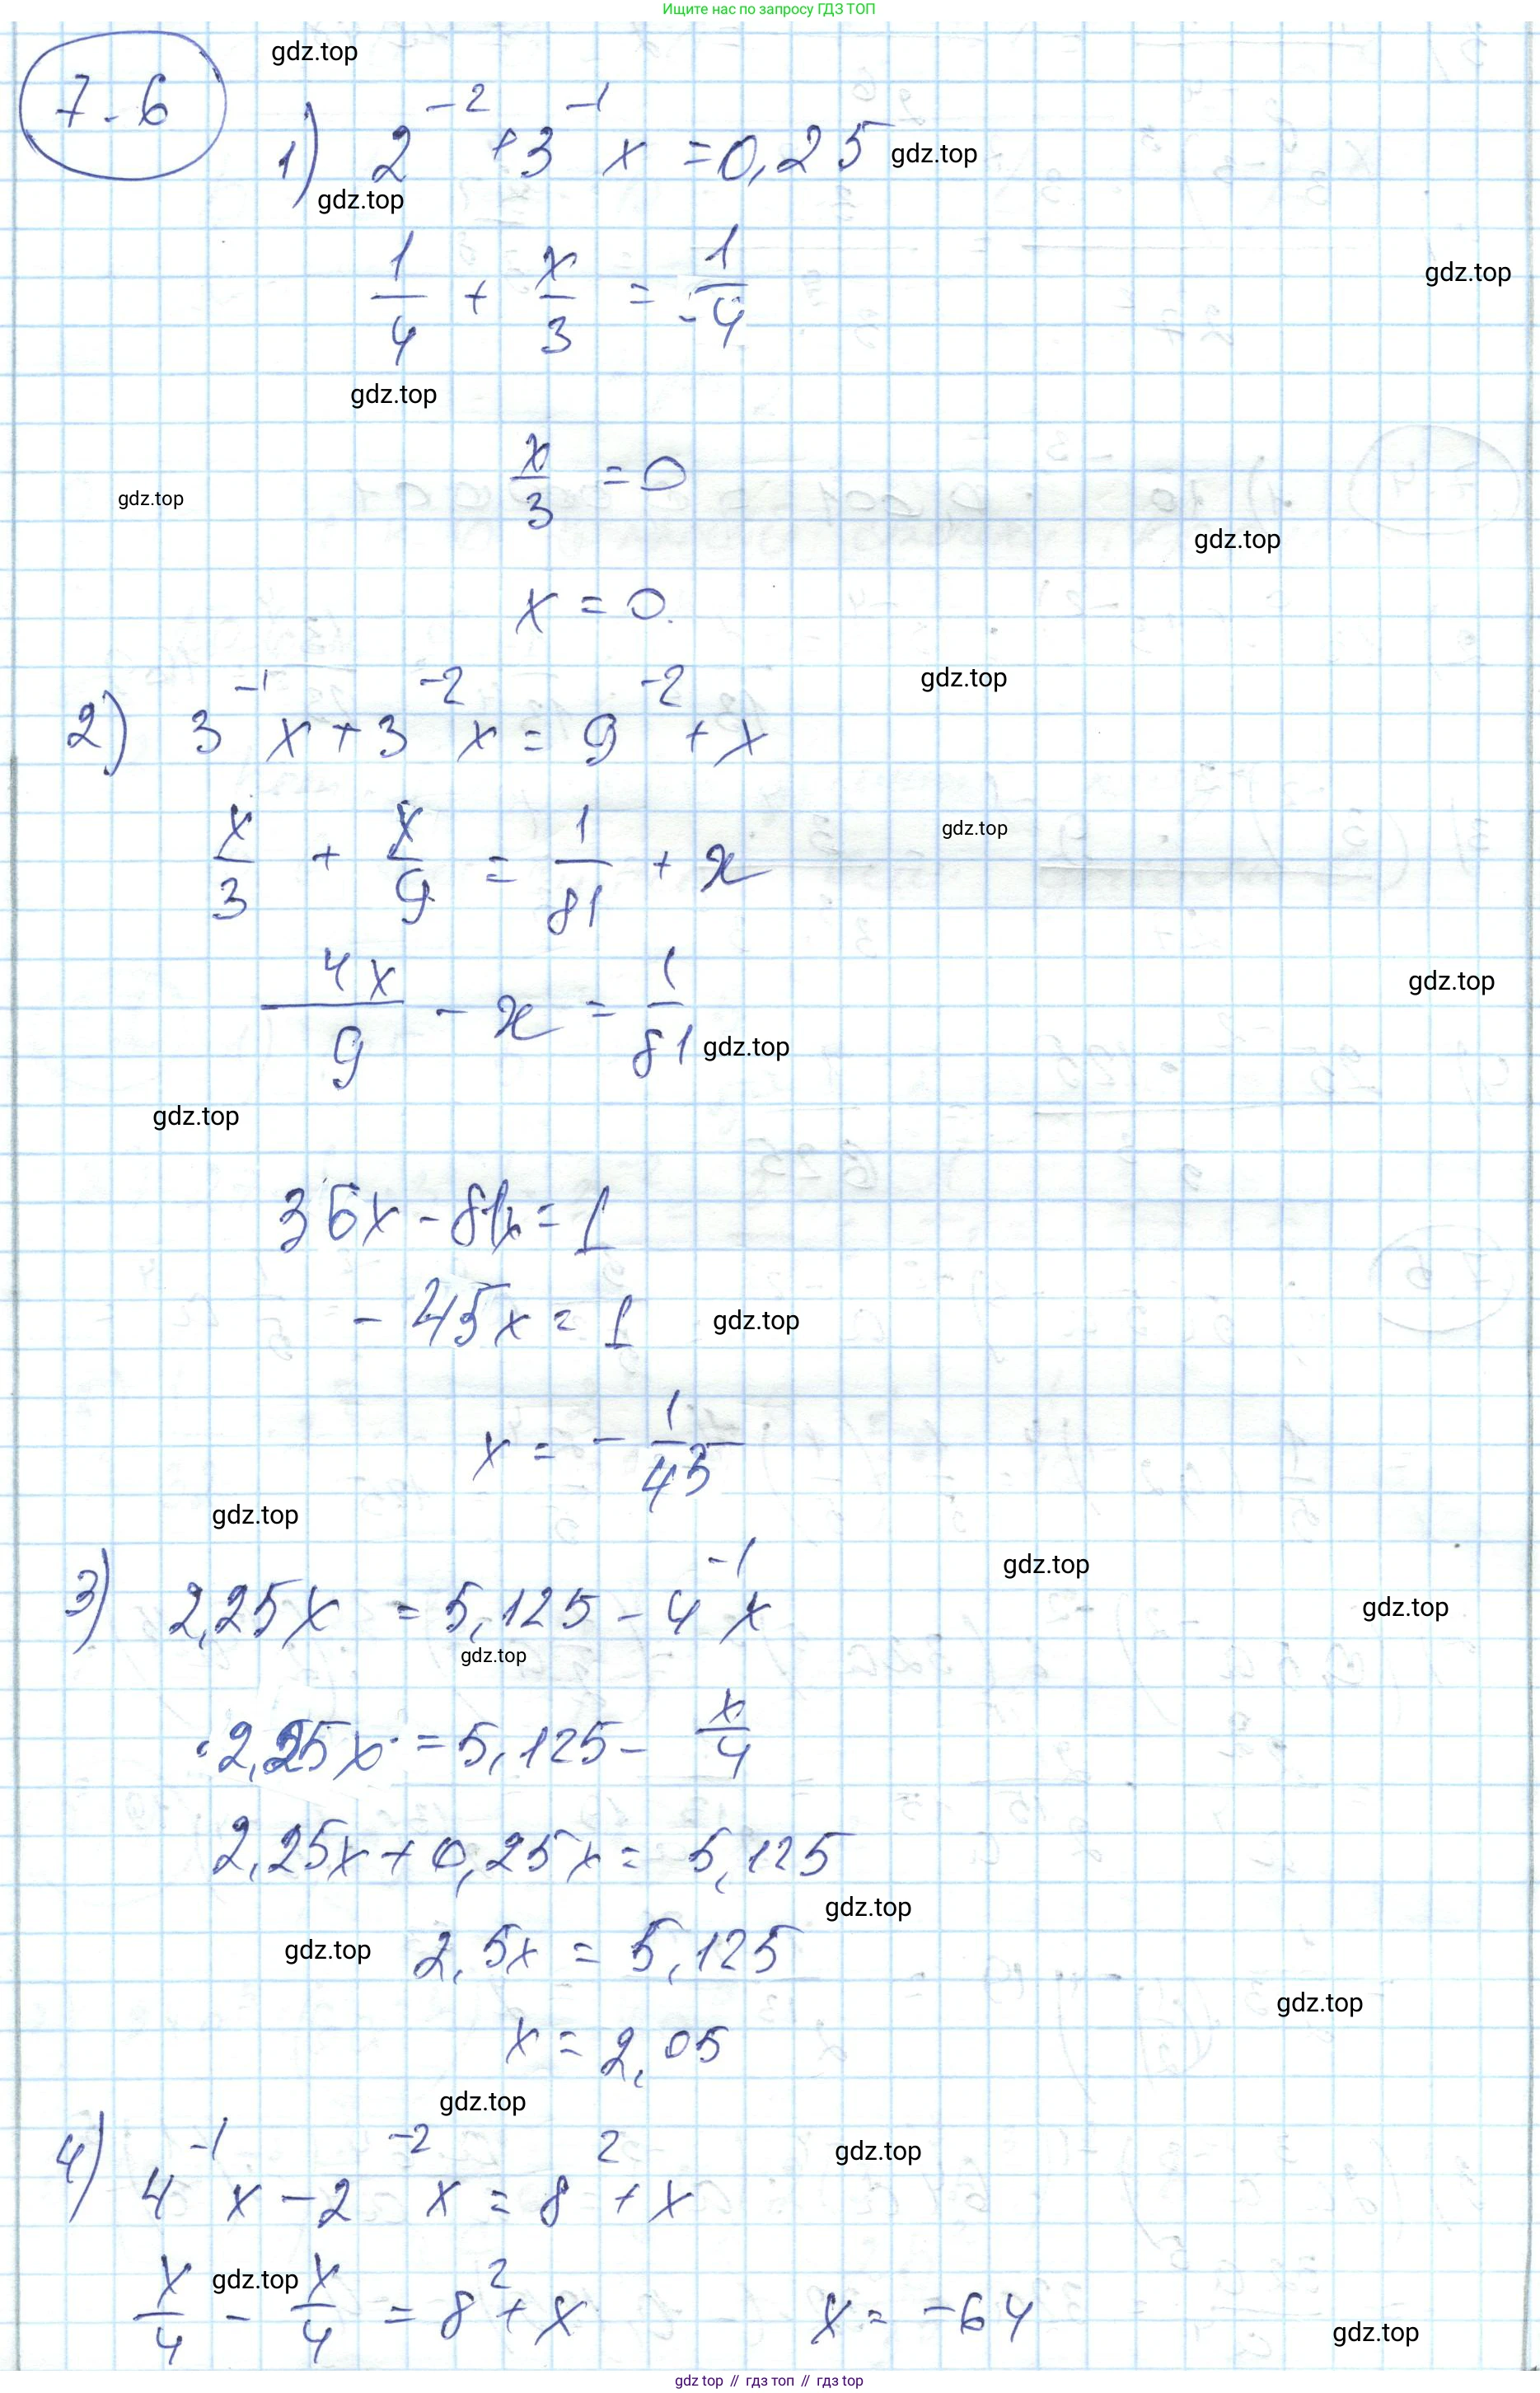 Ищите нас по запросу ГДЗ ТОП
gdz.top
7-6
1) 2⁻² + 3⁻¹ x = 0,25 gdz.top
gdz.top
1/4 + x/3 = 1/4
gdz.top
gdz.top
x/3 = 0
gdz.top
gdz.top
x = 0.
gdz.top
2) 3⁻¹ x + 3⁻² x = 9⁻² + x
gdz.top
x/3 + x/9 = 1/81 + x
gdz.top
4x/9 - x = 1/81 gdz.top
gdz.top
36x - 81x = 1
- 45x = 1 gdz.top
x = - 1/45
gdz.top
gdz.top
3) 2,25x = 5,125 - 4⁻¹ x gdz.top
gdz.top
2,25x = 5,125 - x/4
2,25x + 0,25x = 5,125
gdz.top
gdz.top 2,5x = 5,125
gdz.top
x = 2,05
gdz.top
4) 4⁻¹ x - 2⁻² x = 8² + x gdz.top
gdz.top
x/4 - x/4 = 8² + x x = -64
gdz.top
gdz top // гдз топ // гдз top